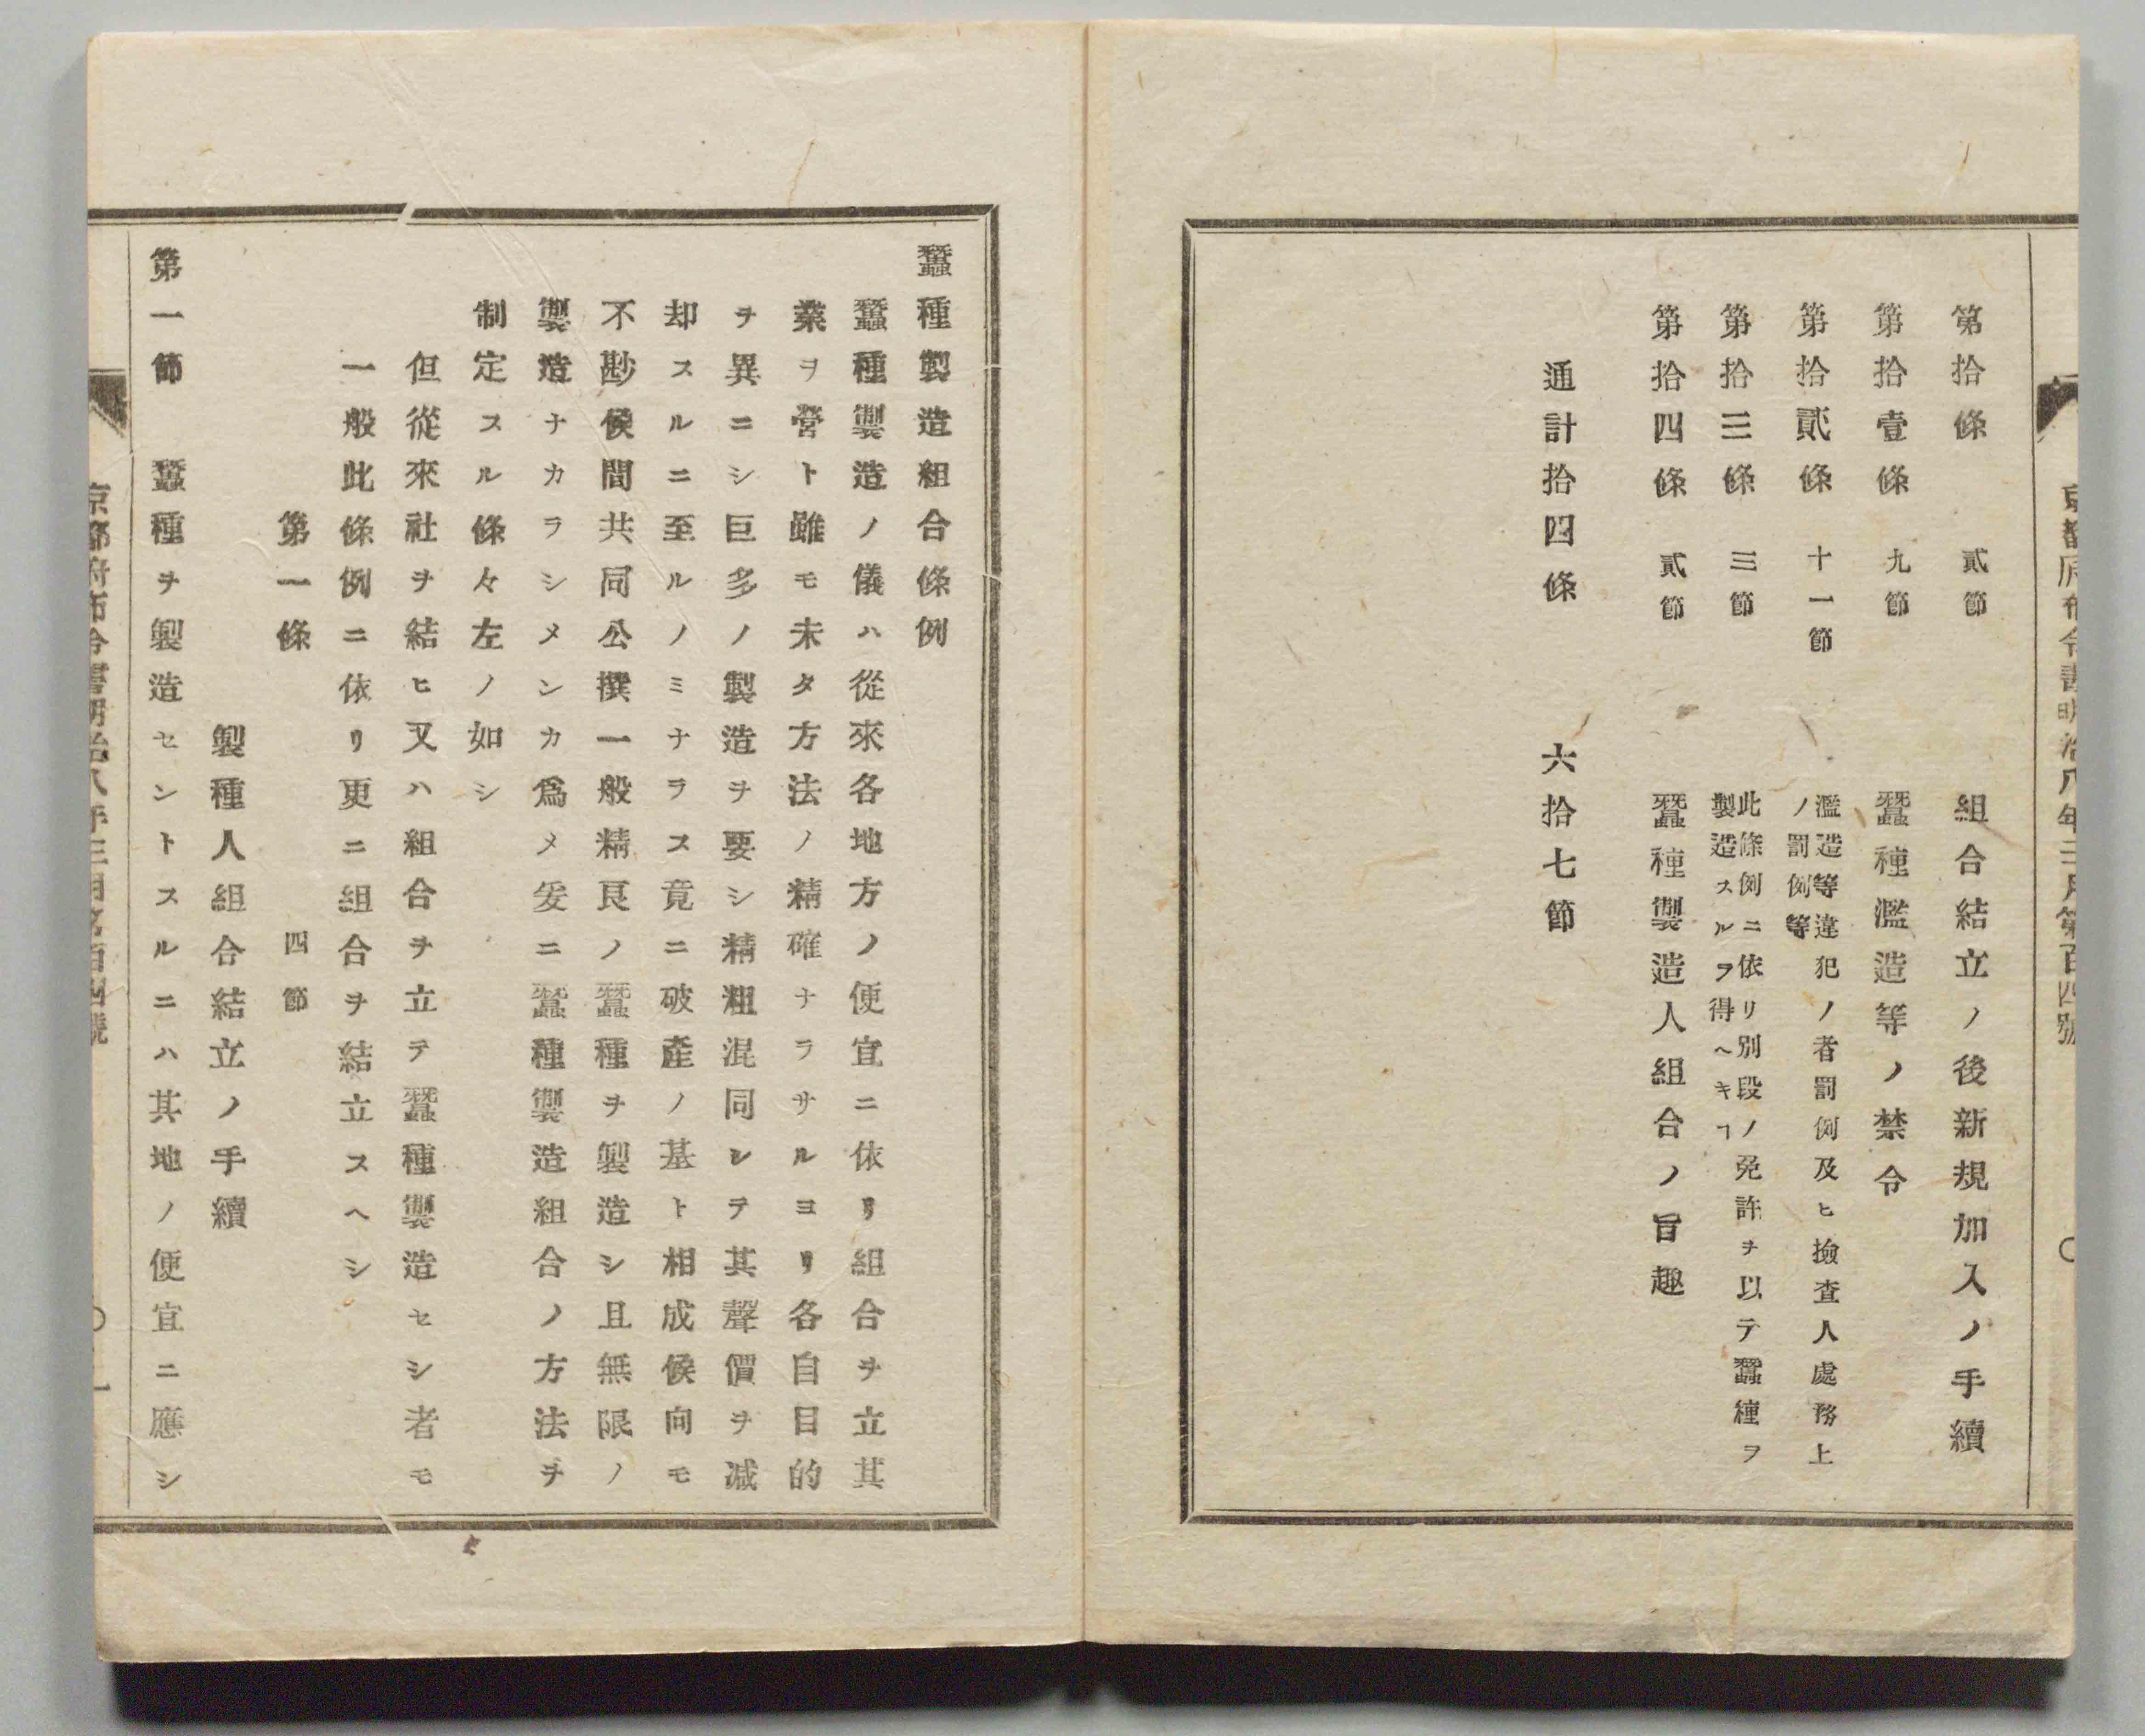 京都府布令書明治八年三月第百四號
第拾條 貳節 組合結立ノ後新規加入ノ手續
第拾壹條 九節 蠶種濫造等ノ禁令
第拾貳條 十一節 濫造等違犯ノ者罰例及ヒ撿査人處務上
ノ罰例等
第拾三條 三節 此條例ニ依リ別段ノ免許ヲ以テ蠶種ヲ
製造スルヲ得ヘキヿ
第拾四條 貳節 蠶種製造人組合ノ旨趣
通計拾四條 六拾七節
蠶種製造組合條例
蠶種製造ノ儀ハ從來各地方ノ便宜ニ依リ組合ヲ立其
業ヲ營ト雖モ未タ方法ノ精確ナラサルヨリ各自目的
ヲ異ニシ巨多ノ製造ヲ要シ精粗混同シテ其聲價ヲ减
却スルニ至ルノミナラス竟ニ破產ノ基ト相成候向モ
不尠候間共同公撰一般精良ノ蠶種ヲ製造シ且無限ノ
製造ナカラシメンカ爲メ爰ニ蠶種製造組合ノ方法ヲ
制定スル條々左ノ如シ
但從來社ヲ結ヒ又ハ組合ヲ立テ蠶種製造セシ者モ
一般此條例ニ依リ更ニ組合ヲ結立スヘシ
第一條 四節
製種人組合結立ノ手續
第一節 蠶種ヲ製造セントスルニハ其地ノ便宜ニ應シ
京都府布令書明治八年三月第百四號 〇 一